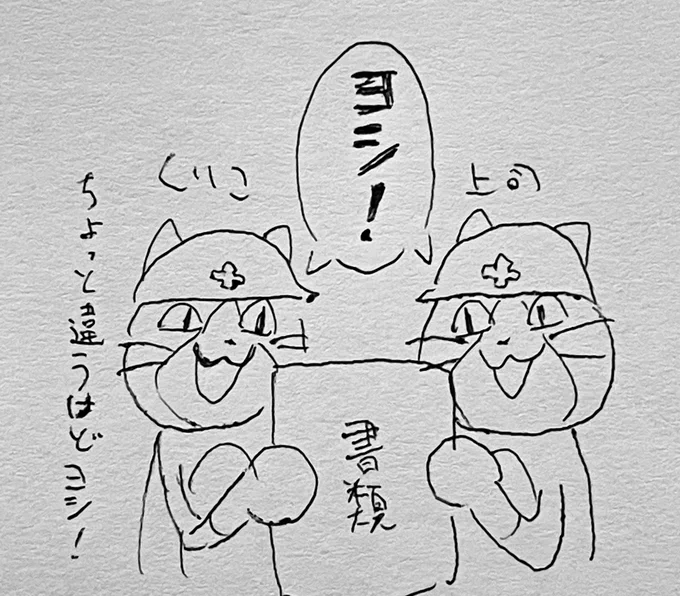 ヨシ!
上司
くりこ
ちょっと違うけどヨシ!
書類